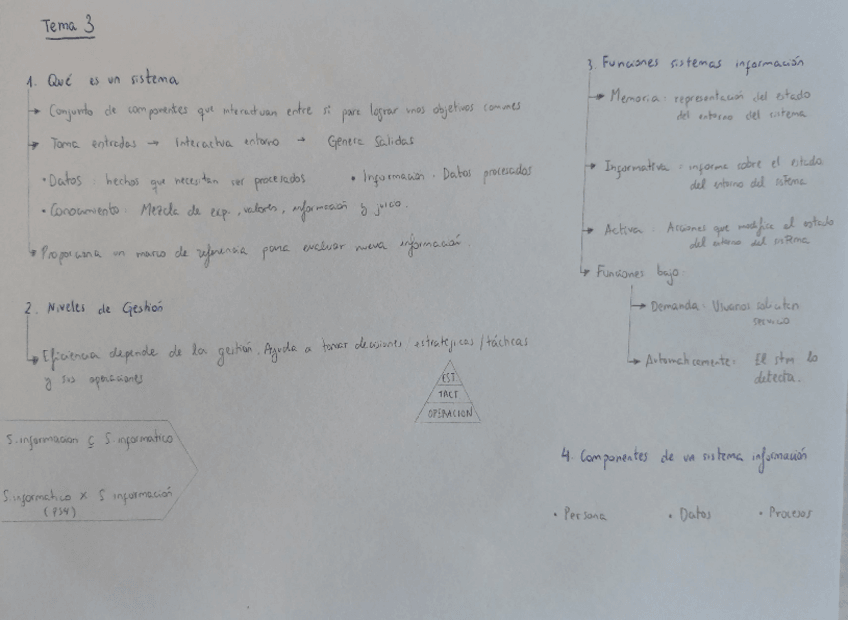 Tema 3
1. Qué es un sistema
→ Conjunto de componentes que interactuan entre si para lograr unos objetivos comunes
→ Toma entradas → Interactua entorno → Genera Salidas
• Datos : hechos que necesitan ser procesados • Información : Datos procesados
• Conocimiento : Mezcla de exp., valores, información y juicio.
→ Proporciona un marco de referencia para evaluar nueva información.
2. Niveles de Gestión
→ Eficiencia depende de la gestión. Ayuda a tomar decisiones estratégicas / tácticas
y sus operaciones
EST
TACT
OPERACION
S. informacion ⊆ S informatico
S. informatico x S información
(PS4)
3. Funciones sistemas información
→ Memoria : representación del estado
del entorno del sistema
→ Informativa : informe sobre el estado
del entorno del sistema
→ Activa : Acciones que modifica el estado
del entorno del sistema
→ Funciones bajo:
→ Demanda : solicitan
servicio
→ Automaticamente : El stm lo
detecta.
4. Componentes de un sistema información
• Persona • Datos • Procesos